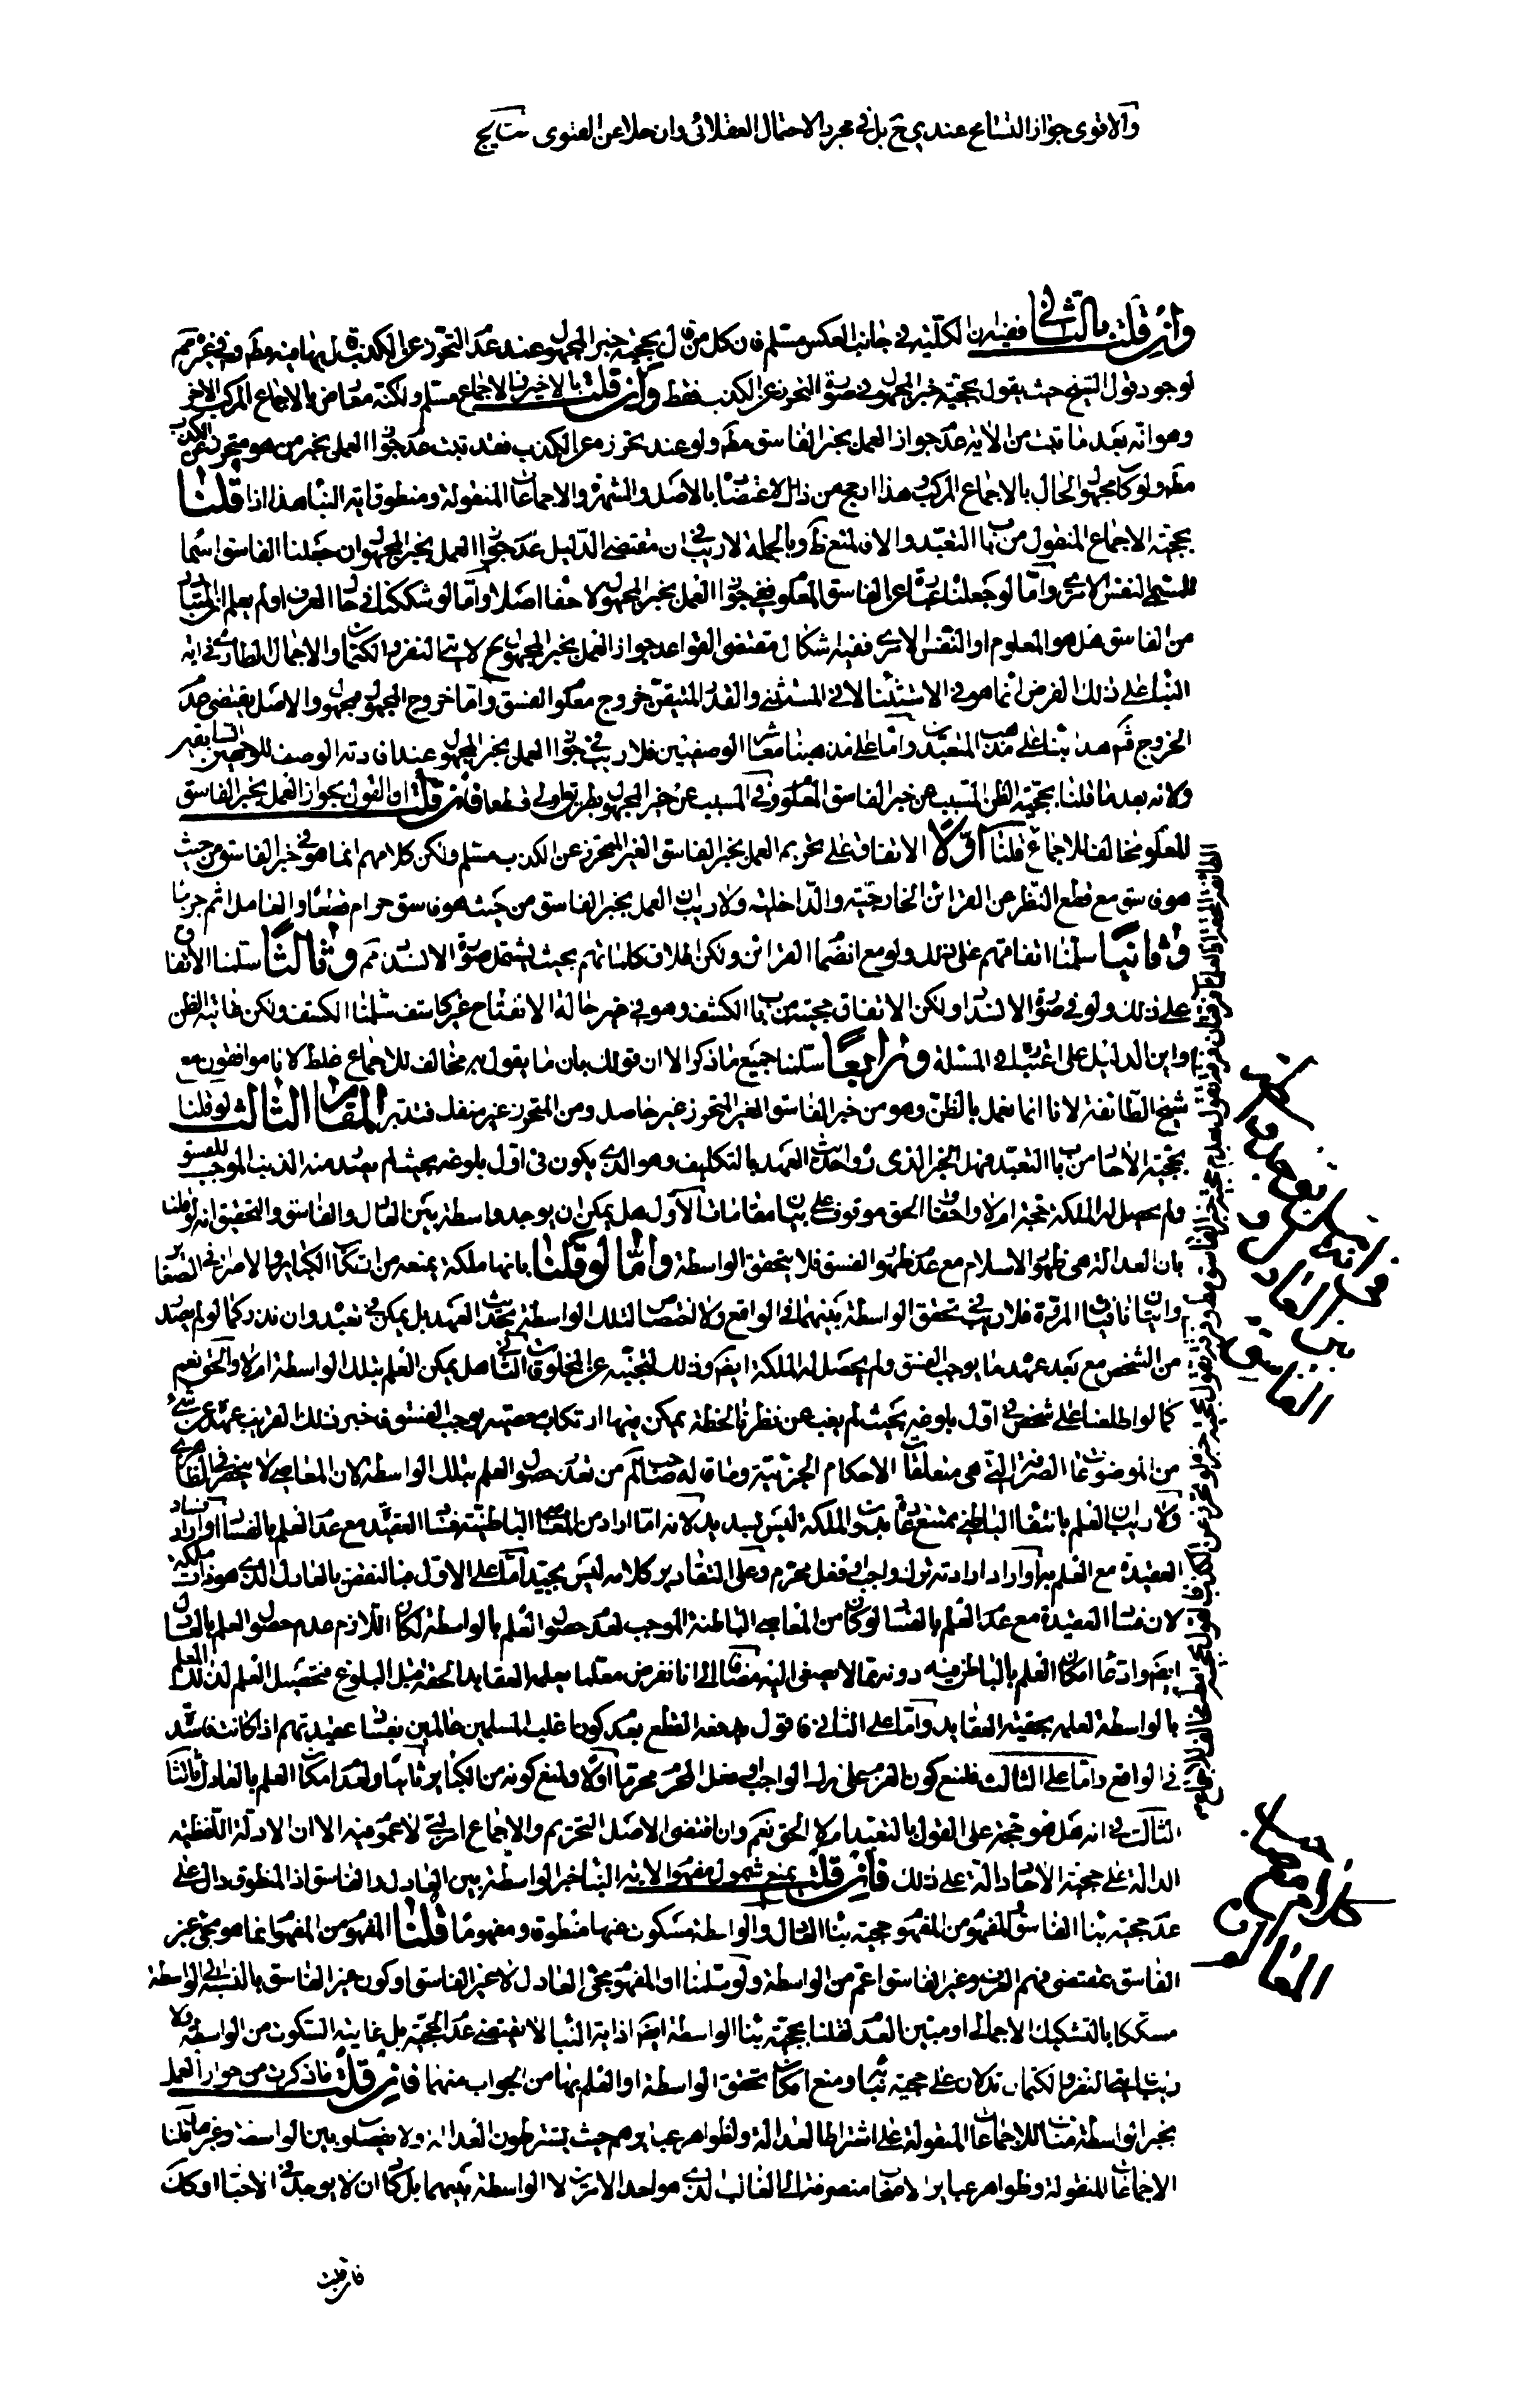 والاقوى جواز التسامح عندي ح بل في مجرد الاحتمال العقلائى وان خلا عن الفتوى
وان قلت بالثانى ففيه ان الكلية في جانب العكس مسلم فان كل من قال بحجية خبر المجهول عند عدم التحرز عن الكذب
لوجود قول الشيخ حيث يقول بحجية خبر المجهول في صورة التحرز عن الكذب فقط وان قلت بالاخير فالاجماع مسلم ولكنه معارض بالاجماع المركب الاخر
وهو انه بعد ما ثبت من الاية عدم جواز العمل بخبر الفاسق مط ولو عند تحرزه عن الكذب فقد ثبت عدم جواز العمل بخبر من هو متحرز عن الكذب
مط ولو كان مجهول الحال بالاجماع المركب وهذا ارجح من ذلك لاعتضاده بالاصل والشهرة والاجماعات المنقولة ومنطوق اية النبا هذا اذا قلنا
بحجية الاجماع المنقول من باب التعبد والا فالمنع ظ وبالجملة لا ريب في ان مقتضى الدليل عدم جواز العمل بخبر المجهول ان جعلنا الفاسق اسما
للمسمى النفس الامرى واما لو جعلناه عبارة عن الفاسق المعلوم ففي جواز العمل بخبر المجهول لا خفاء اصلا واما لو شككنا في حال العرف او لم يعلم ان المتبادر
من الفاسق هل هو المعلوم او النفس الامرى ففيه اشكال مقتضى القواعد جواز العمل بخبر المجهول ح لايتى النفر والكتمان والاجمال الطارى في اية
النبا على ذلك الفرض انما هو في الاستثناء لا في المستثنى والقدر المتيقن خروج معلوم الفسق واما خروج المجهول فمجهول والاصل يقتضى عدم
الخروج ثم هذا بناء على مذهب التعبد واما على مذهبنا معاشر الوصفيين فلا ريب في جواز العمل بخبر المجهول عند افادته الوصف للوجهين السابقين
ولانه بعد ما قلنا بحجية الظن المسبب عن خبر الفاسق المعلوم ففى المسبب عن خبر المجهول بطريق اولى قطعا فان قلت ان القول بجواز العمل بخبر الفاسق
المعلوم مخالف للاجماع قلنا اولا الاتفاق على تحريم العمل بخبر الفاسق الغير المتحرز عن الكذب مسلم ولكن كلامهم انما هو في خبر الفاسق من حيث
هو فاسق مع قطع النظر عن القرائن الخارجية والداخلية ولا ريب ان العمل بخبر الفاسق من حيث هو فاسق حرام قطعا والعامل اثم جزما
وثانيا سلمنا اتفاقهم على ذلك ولو مع انضمام القرائن ولكن اطلاق كلماتهم بحيث يشمل صورة الانسداد مم وثالثا سلمنا الاتفاق
على ذلك ولو في صورة الانسداد ولكن الاتفاق حجيته من باب الكشف وهو في غير حالة الانفتاح غير كاشف سلمنا الكشف ولكن غايته الظن
واين الدليل على اعتباره في المسئلة ورابعا سلمنا جميع ما ذكر الا ان قولك بان ما يقول به مخالف للاجماع غلط لانا موافقون مع
شيخ الطائفة لانا انما نعمل بالظن وهو من خبر الفاسق الغير المتحرز غير حاصل ومن المتحرز غير منفك فتدبر المقام الثالث لو قلنا
بحجية الاحاد من باب التعبد فهل الخبر الذى رواه حديث العهد بالتكليف وهو الذى يكون في اول بلوغه بحيث لم يصدر منه الذنب الموجب للفسق
ولم يحصل له الملكة حجة ام لا واحقاق الحق موقوف على بيان مقامات الاول هل يمكن ان يوجد واسطة بين العادل والفاسق والتحقيق انه لو قلنا
بان العدالة هى ظهور الاسلام مع عدم ظهور الفسق فلا يتحقق الواسطة واما لو قلنا بانها ملكة يمنعه من ارتكاب الكباير والاصرار في الصغاير
واتيان منافيات المروة فلا ريب في تحقق الواسطة بينهما في الواقع ولا اختصاص لتلك الواسطة بحديث العهد بل يمكن في بعيده وان ندر كما لو لم يصدر
من الشخص مع بعد عهده ما يوجب الفسق ولم يحصل له الملكة ايضا وذلك لتجنبه عن المخلوقات الثانى هل يمكن العلم بتلك الواسطة ام لا والحق نعم
كما لو اطلعنا على شخص في اول بلوغه بحيث لم يغب عن نظرنا لحظة يمكن فيها ارتكاب معصية يوجب الفسق فاخبر ذلك القريب عهده عن شىء
من الموضوعات الصرفة التى هى متعلقات الاحكام الجزئية وما قاله صاحب المعالم من تعذر حصول العلم بتلك الواسطة لان المعاصى لا ينحصر في الظاهرى
ولا ريب ان العلم بانتفاء الباطنى ممتنع عادة بدون الملكة ليس بسديد لانه اما اراد من المعاصى الباطنية فساد العقيدة مع عدم العلم بالفساد او اراد فساد
العقيدة مع العلم به او اراد ارادته ترك واجب او فعل محرم وعلى التقادير كلامه ليس بجيد اما على الاول فبالنقض بالعادل الذى هو ذات ملكة
لان فساد العقيدة مع عدم العلم بالفساد لو كان من المعاصى الباطنة الموجب لعدم حصول العلم بالواسطة لكان اللازم عدم حصول العلم بالعادل
ايضا وادعاء امكان العلم بالباطن فيه دونه مما لا يصغى اليه مضافا الى انا نفرض معلما يعلمه العقايد الحقة قبل البلوغ فتحصيل العلم لذلك المعلم
بالواسطة لعلمه بحقية العقايد واما على الثانى فاقول هو خفة القطع بعدم كون اغلب المسلمين عالمين بفساد عقيدتهم اذا كانت فاسدة
في الواقع واما على الثالث فلمنع كون العزم على ترك الواجب او فعل المحرم محرما اولا ولمنع كونه من الكباير ثانيا ولعدم امكان العلم بالعادل ثالثا
الثالث في انه هل هو حجة على القول بالتعبد ام لا الحق نعم وان اقتضى الاصل التحريم والاجماع المركب لا عموم فيه الا ان الادلة اللفظية
الدالة على حجية الاحاد دالة على ذلك فان قلت يمنع شمول مفهوم الاية النبا خبر الواسطة بين العادل والفاسق اذ المنطوق دال على
عدم حجية نبا الفاسق والمفهوم من المفهوم حجية نبا العادل والواسطة مسكوت عنها منطوقا ومفهوما قلنا المفهوم من المفهوم انما هو مجىء غير
الفاسق بمقتضى فهم العرف وغير الفاسق اعم من الواسطة ولو سلمنا ان المفهوم مجىء العادل لا غير الفاسق او كون غير الفاسق بالنسبة الى الواسطة
مشككا بالتشكيك الاجمالى او مبين العدم لقلنا بحجية نبا الواسطة ايضا اذ اية النبا لا تقتضى عدم الحجية بل غايته السكوت من الواسطة ولا
ريب ان ايتى النفر والكتمان تدلان على حجية نباه ومنع امكان تحقق الواسطة او العلم بها من الجواب عنهما فان قلت ما ذكرت من جواز العمل
بخبر الواسطة مناف للاجماعات المنقولة على اشتراط العدالة ولظواهر عبايرهم حيث يشترطون العدالة ولا يفصلون بين الواسطة وغيرها قلنا
الاجماعات المنقولة وظواهر عباير الاصحاب منصرفة الى الغالب الذى هو احد الامرين لا الواسطة بينهما بل كاد ان لا يوجد في الاخبار او كلك
فان قلت